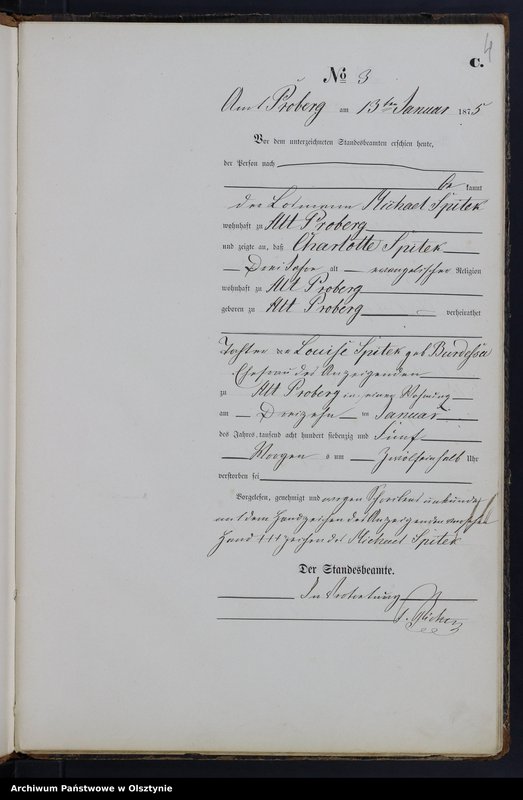 4
C.
No 3
Amt Proberg am 13ten Januar 1875
Vor dem unterzeichneten Standesbeamten erschien heute,
der Person nach
be kannt
der Michael Spitek
wohnhaft zu Alt Proberg
und zeigte an, daß Charlotte Spitek
Drei Jahre alt evangelischer Religion
wohnhaft zu Alt Proberg
geboren zu Alt Proberg verheirathet
Tochter der Louise Spitek geb Burdessa
Ehefrau des Anzeigenden
zu Alt Proberg in seiner Wohnung
am Dreizehn ten Januar
des Jahres tausend acht hundert siebenzig und Fünf
Morgens um Zwölfeinhalb Uhr
verstorben sei
Vorgelesen, genehmigt und wegen Schreibens unkunde
mit dem Handzeichen des Anzeigenden versehen
Hand +++ zeichen des Michael Spitek
Der Standesbeamte.
In Vertretung
Archiwum Państwowe w Olsztynie